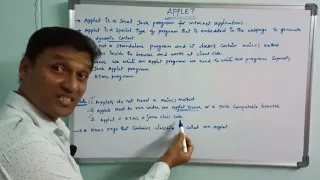 APPLET
→ Applet is a Small Java program for internet applications.
→ Applet is a Special type of program that is embedded in the webpage to generate
dynamic content.
not a standalone program and it doesn't contain main() method
inside the browser and works at client side.
we write an applet program we need to write two programs separately
Java Applet program.
HTML program.
is Applets do not need a main() method.
Applets must be run under an applet viewer or a Java Compatible browser
Applet = HTML + java class code.
→ A HTML page that contains called an applet